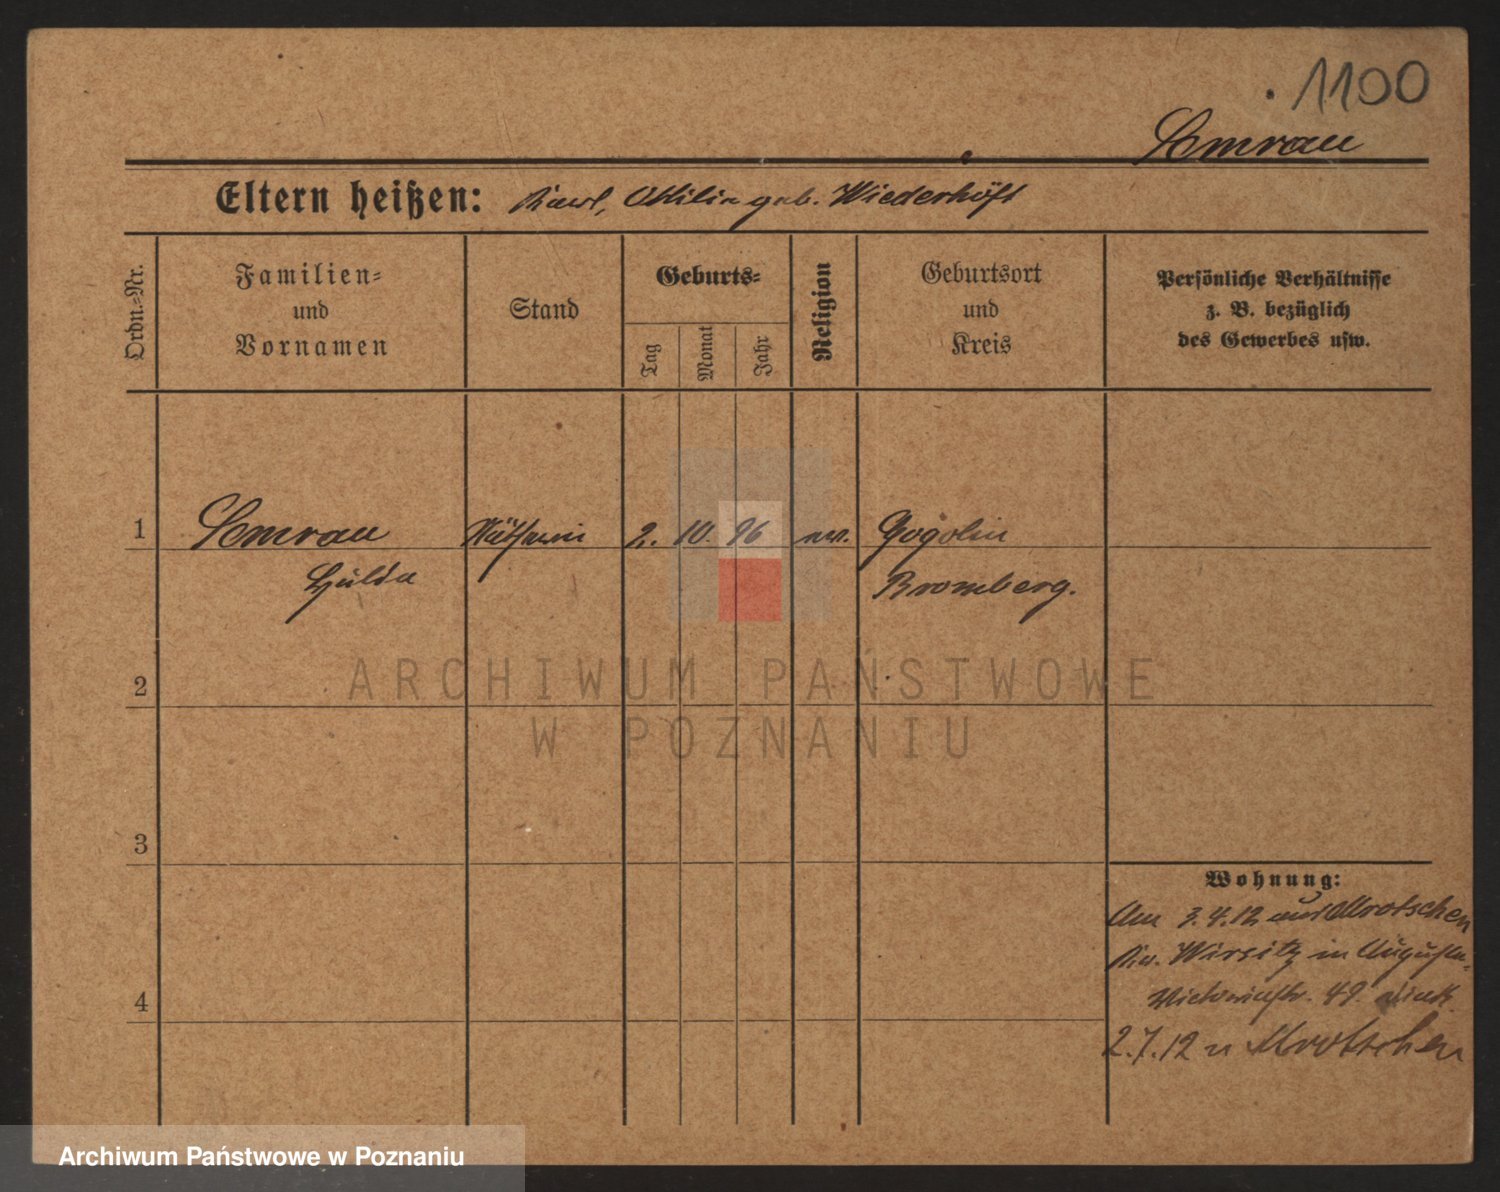 1100
Semrau
Eltern heißen: Karl, Ottilie geb. Wiederhöft
Ordn.-Nr.
Familien-
und
Vornamen
Stand
Geburts-
Tag
Monat
Jahr
Religion
Geburtsort
und
Kreis
Persönliche Verhältnisse
z. B. bezüglich
des Gewerbes usw.
1 Semrau Näherin 2. 10. 96 ev. Gogolin
Hulda Bromberg.
2
ARCHIWUM PAŃSTWOWE
W POZNANIU
3
Wohnung:
Am 3.4.12 aus Mrotschen
Kr. Wirsitz in Augusta-
Victoriastr. 49.
4
2.7.12 n Mrotschen
Archiwum Państwowe w Poznaniu